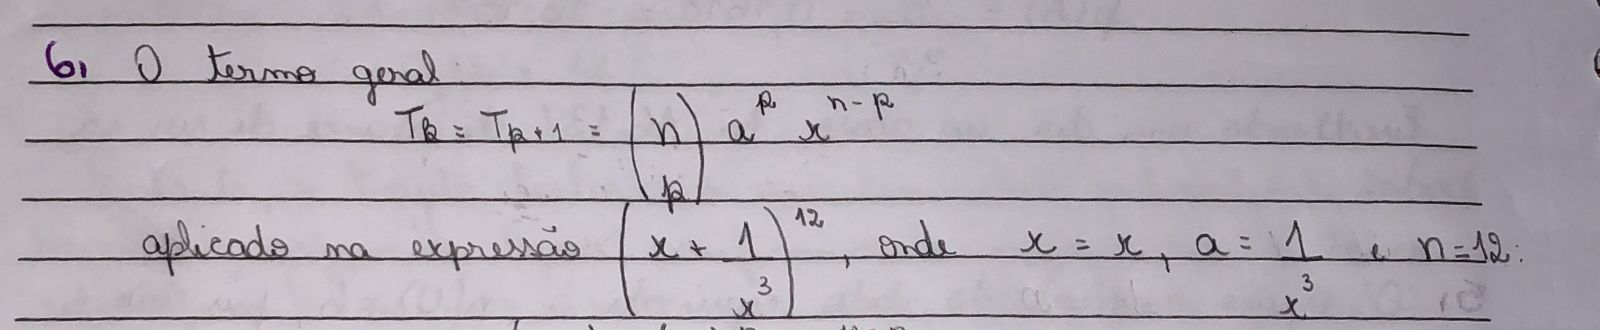 6, O termo geral
Tk = Tp+1 = (n p) a^p x^n-p
aplicado na expressão (x + 1/x^3)^12, onde x = x, a = 1/x^3 e n=12: